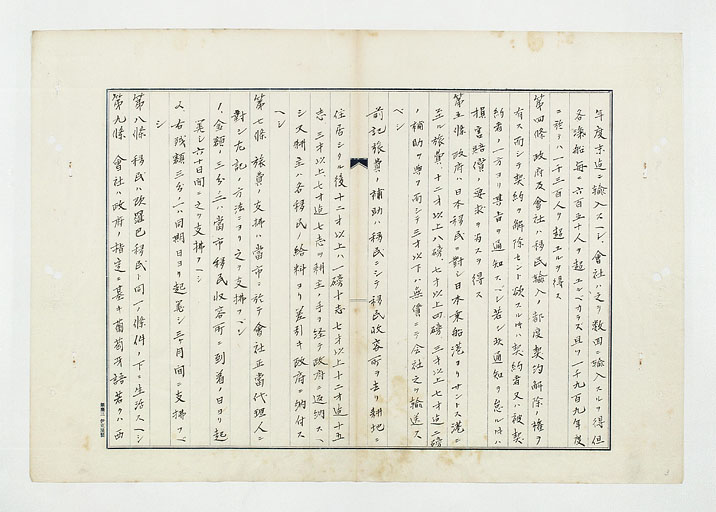 年度末迄ニ輸入スヘシ、會社ハ之ヲ数回ニ輸入スルヲ得但
各漕船毎ニ六百五十人ヲ超エルベカラズ且ツ一千九百九年度
ニ於テハ一千三百人ヲ超エルヲ得ス
第四條 政府及會社ハ移民輸入ノ都度契約解除ノ權ヲ
有ス而シテ契約ヲ解除セント欲スル時ハ契約者又ハ被契
約者ノ一方ヨリ其旨ヲ通知スベシ若シ此通知ヲ怠ル時ハ
損害賠償ノ要求ヲ有スヲ得ス
第五條 政府ハ日本移民ニ對シ日本乗船港ヨリサントス港ニ
至ル旅費ノ十二才以上八磅、七才以上四磅 三才以上七才迄二磅
ノ補助ヲ與フ而シテ三才以下ハ無償ニテ会社之ヲ輸送ス
ベシ
前記旅費ノ補助ハ移民ニシテ移民收容所ヲ去リ耕地ニ
住居シタル後十二才以上ハ一磅十志 七才以上十二才迄十五
志 三才以上七才迄七志ヲ耕主ノ手ヲ経テ政府ニ返納スヘ
シ又耕主ハ各移民ノ給料ヨリ差引キ政府ニ納付ス
ヘシ
第七條 旅費ノ支拂ハ當市ニ於テ會社正當代理人ニ
對シ左記ノ方法ニヨリ之ヲ支拂フベシ
イ、金額ノ三分ノ二ハ當市移民收容所ニ到着ノ日ヨリ起
算シ六十日間ニ之ヲ支拂フヘシ
又右残額三分ノ一ハ同期日ヨリ起算シ三ヶ月間ニ支拂フベシ
第八條 移民ハ欧羅巴移民ト同一ノ條件ノ下ニ生活スヘシ
第九條 會社ハ政府ノ指定ニ基キ葡萄牙語若クハ西